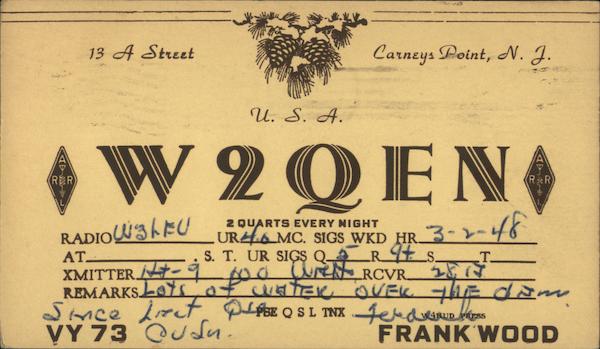 13 A Street
Carneys Point, N. J.
U. S. A.
A R R L
W2QEN
A R R L
2 QUARTS EVERY NIGHT
RADIO W3LEV UR 40 MC. SIGS WKD HR 3-2-48
AT S. T. UR SIGS Q 5 R 9+ S T
XMITTER HT-9 100 WATT RCVR
REMARKS LOTS OF WATER OVER THE dam
Since last QSO PSE Q S L TNX W4RUD PRESS
VY 73 FRANK WOOD